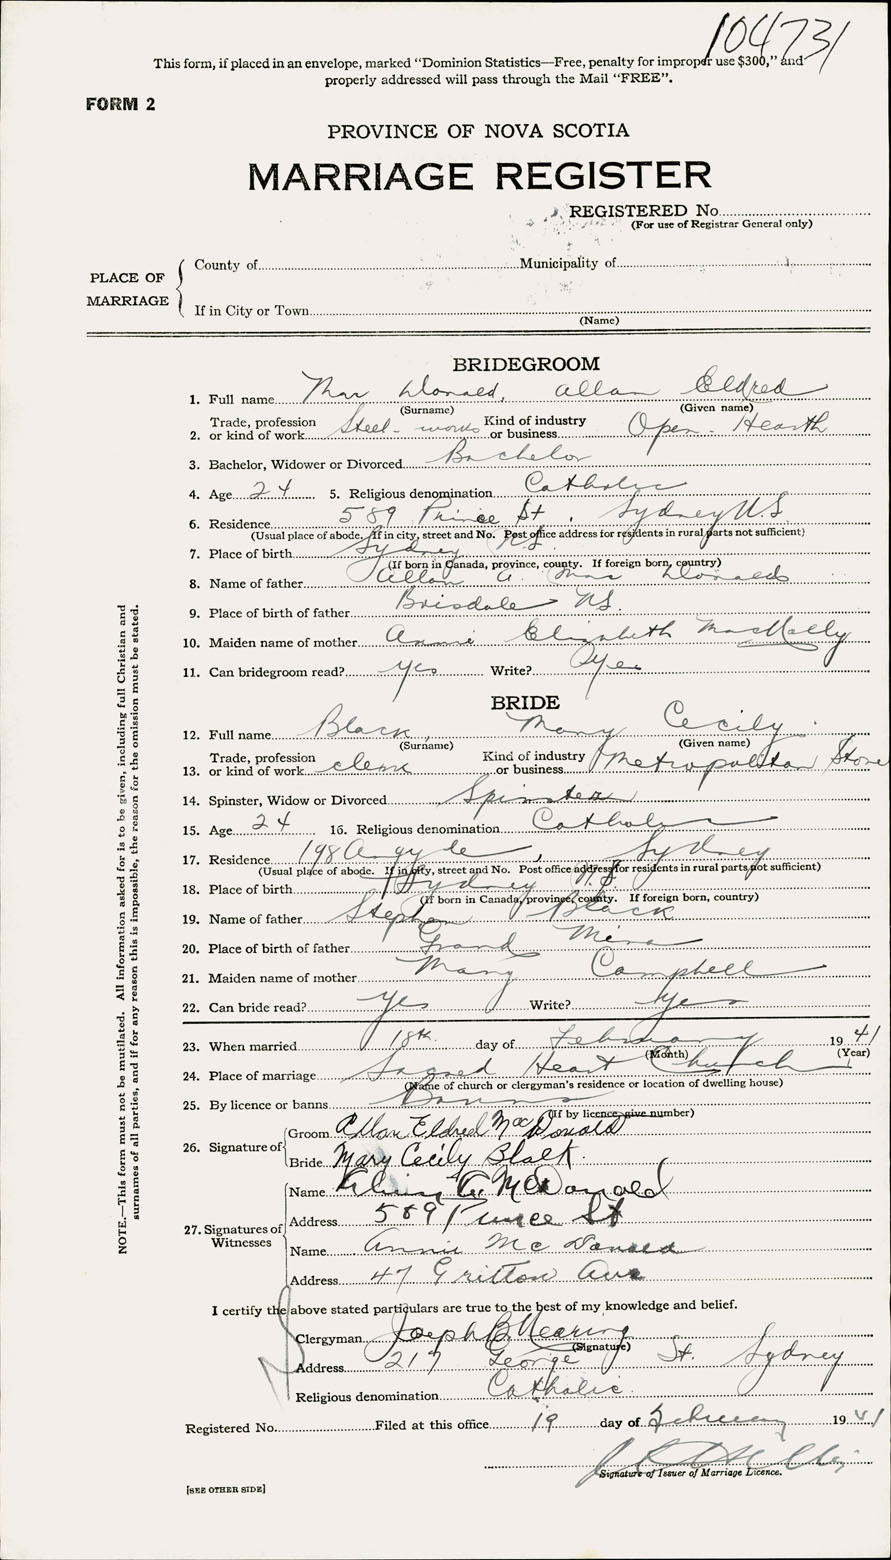 104731
This form, if placed in an envelope, marked “Dominion Statistics—Free, penalty for improper use $300,” and
properly addressed will pass through the Mail “FREE”.
FORM 2
PROVINCE OF NOVA SCOTIA
MARRIAGE REGISTER
REGISTERED No.
(For use of Registrar General only)
PLACE OF MARRIAGE
County of Municipality of
If in City or Town
(Name)
BRIDEGROOM
1. Full name Mac Donald, Allan Eldred
(Surname) (Given name)
2. Trade, profession or kind of work Steel-works Kind of industry or business Open-Hearth
3. Bachelor, Widower or Divorced Bachelor
4. Age 24 5. Religious denomination Catholic
6. Residence 589 Prince St., Sydney N.S.
(Usual place of abode. If in city, street and No. Post office address for residents in rural parts not sufficient)
7. Place of birth Sydney N.S.
(If born in Canada, province, county. If foreign born, country)
8. Name of father Allan A. Mac Donald
9. Place of birth of father Brisdale N.S.
10. Maiden name of mother Annie Elizabeth
11. Can bridegroom read? yes Write? yes
BRIDE
12. Full name Black, Mary Cecily
(Surname) (Given name)
13. Trade, profession or kind of work clerk Kind of industry or business Metropolitan Store
14. Spinster, Widow or Divorced Spinster
15. Age 24 16. Religious denomination Catholic
17. Residence 198 Argyle, Sydney
(Usual place of abode. If in city, street and No. Post office address for residents in rural parts not sufficient)
18. Place of birth Sydney N.S.
(If born in Canada, province, county. If foreign born, country)
19. Name of father Stephen Black
20. Place of birth of father Grand Mira
21. Maiden name of mother Mary Campbell
22. Can bride read? yes Write? yes
23. When married 18th day of February 1941
(Month) (Year)
24. Place of marriage Sacred Heart Church
(Name of church or clergyman's residence or location of dwelling house)
25. By licence or banns Banns
(If by licence give number)
26. Signature of
Groom Allan Eldred MacDonald
Bride Mary Cecily Black.
27. Signatures of Witnesses
Name McDonald
Address 589 Prince St
Name Annie McDonald
Address 47 Gritton Ave
I certify the above stated particulars are true to the best of my knowledge and belief.
Clergyman Joseph B. Nearing
(Signature)
Address 217 George St. Sydney
Religious denomination Catholic.
Registered No. Filed at this office 19 day of February 1941
Signature of Issuer of Marriage Licence.
[SEE OTHER SIDE]
NOTE.—This form must not be mutilated. All information asked for is to be given, including full Christian and
surnames of all parties, and if for any reason this is impossible, the reason for the omission must be stated.